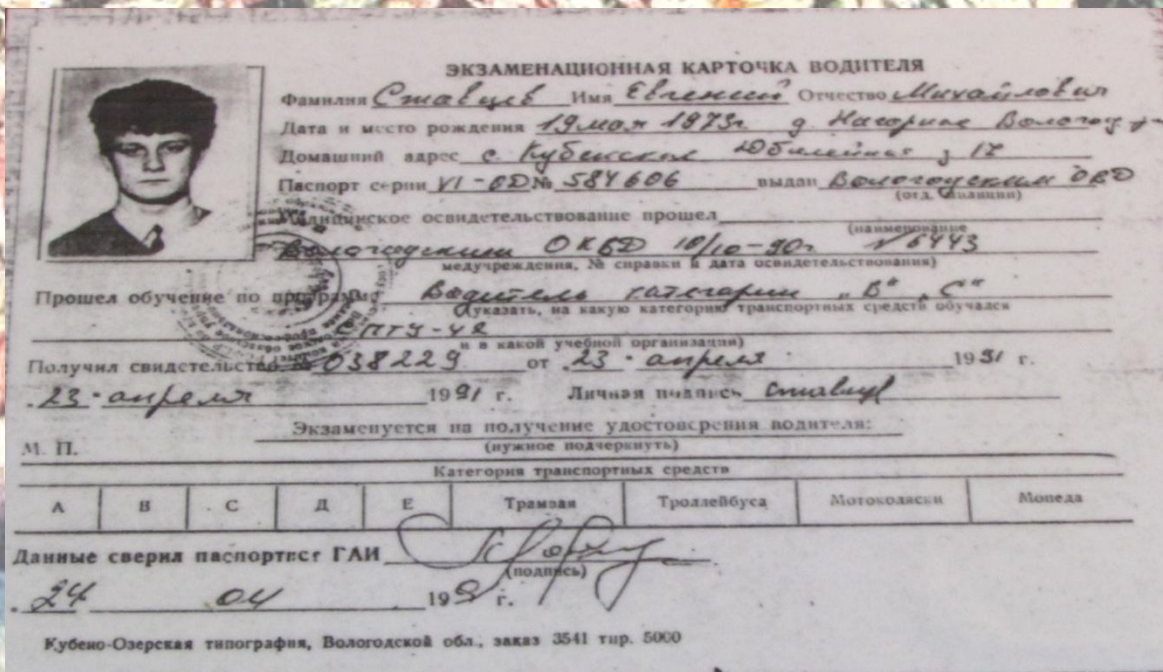 ЭКЗАМЕНАЦИОННАЯ КАРТОЧКА ВОДИТЕЛЯ
Фамилия Ставцев Имя Евгений Отчество Михайлович
Дата и место рождения 19 мая 1973г. д. Нагорное Вологод
Домашний адрес с. Кубенское Юбилейная 17
Паспорт серии VI-ОД № 584606 выдан Вологодским ОВД
(отд. милиции)
Медицинское освидетельствование прошел
(наименование
Вологодским 10/10-90г. №6443
медучреждения, № справки и дата освидетельствования)
Прошел обучение по программе Водитель категории „В" „С"
(указать, на какую категорию транспортных средств обучался
ПТУ-
и в какой учебной организации)
Получил свидетельство № 038229 от 23 · апреля 1991 г.
23 · апреля 1991 г. Личная подпись
Экзаменуется на получение удостоверения водителя:
М. П. (нужное подчеркнуть)
Категория транспортных средств
А В С Д Е Трамвая Троллейбуса Мотоколяски Мопеда
Данные сверил паспортист ГАИ
(подпись)
24 04 1991 г.
Кубено-Озерская типография, Вологодской обл., заказ 3541 тир. 5000